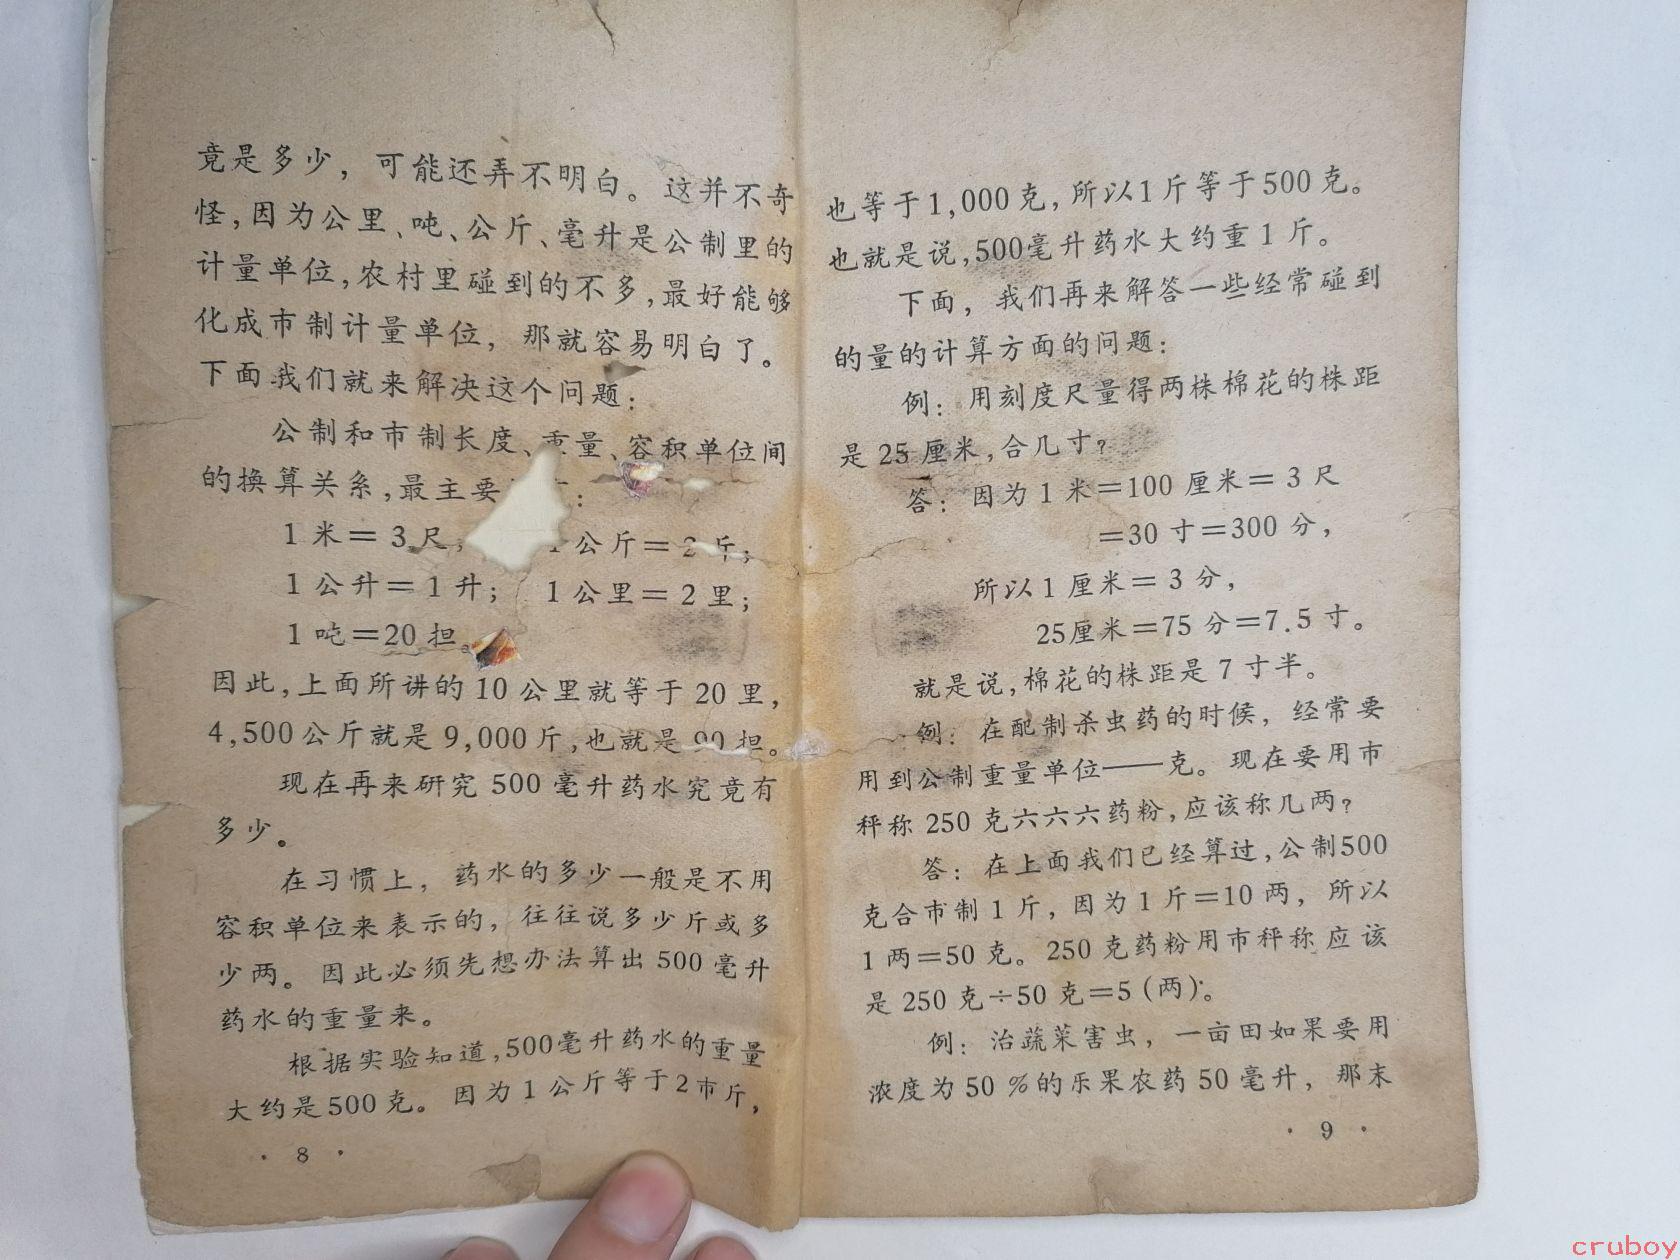 竟是多少，可能还弄不明白。这并不奇
怪，因为公里、吨、公斤、毫升是公制里的
计量单位，农村里碰到的不多，最好能够
化成市制计量单位，那就容易明白了。
下面我们就来解决这个问题：
公制和市制长度、重量、容积单位间
的换算关系，最主要：
1米＝3尺；1公斤＝2斤；
1公升＝1升；1公里＝2里；
1吨＝20担。
因此，上面所讲的10公里就等于20里，
4,500公斤就是9,000斤，也就是90担。
现在再来研究500毫升药水究竟有
多少。
在习惯上，药水的多少一般是不用
容积单位来表示的，往往说多少斤或多
少两。因此必须先想办法算出500毫升
药水的重量来。
根据实验知道，500毫升药水的重量
大约是500克。因为1公斤等于2市斤，
·8·
也等于1,000克，所以1斤等于500克。
也就是说，500毫升药水大约重1斤。
下面，我们再来解答一些经常碰到
的量的计算方面的问题：
例：用刻度尺量得两株棉花的株距
是25厘米，合几寸？
答：因为1米＝100厘米＝3尺
＝30寸＝300分，
所以1厘米＝3分，
25厘米＝75分＝7.5寸。
就是说，棉花的株距是7寸半。
例：在配制杀虫药的时候，经常要
用到公制重量单位——克。现在要用市
秤称250克六六六药粉，应该称几两？
答：在上面我们已经算过，公制500
克合市制1斤，因为1斤＝10两，所以
1两＝50克。250克药粉用市秤称应该
是250克÷50克＝5（两）。
例：治蔬菜害虫，一亩田如果要用
浓度为50％的乐果农药50毫升，那末
·9·
cruboy